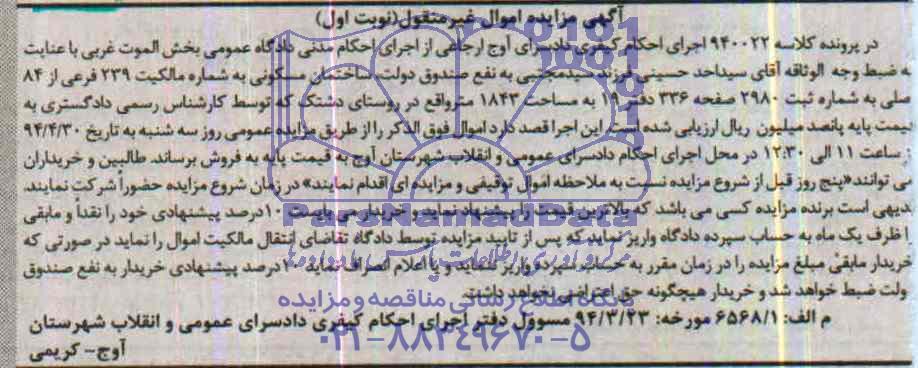 آگهی مزایده اموال غیرمنقول(نوبت اول)
در پرونده کلاسه ۹۴۰۰۲۲ اجرای احکام کیفری دادسرای آوج ارجاعی از اجرای احکام مدنی دادگاه عمومی بخش الموت غربی با عنایت
به ضبط وجه الوثاقه آقای سیداحد حسینی فرزند سیدمجتبی به نفع صندوق دولت ساختمان مسکونی به شماره مالکیت ۲۳۹ فرعی از ۸۴
صلی به شماره ثبت ۲۹۸۰ صفحه ۳۳۶ دفتر ۱۹ به مساحت ۱۸۴۳ مترواقع در روستای دشتک که توسط کارشناس رسمی دادگستری به
قیمت پایه پانصد میلیون ریال ارزیابی شده است این اجرا قصد دارد اموال فوق الذکر را از طریق مزایده عمومی روز سه شنبه به تاریخ ۹۴/۴/۳۰
ز ساعت ۱۱ الی ۱۲:۳۰ در محل اجرای احکام دادسرای عمومی و انقلاب شهرستان آوج به قیمت پایه به فروش برساند. طالبین و خریداران
می توانند «پنج روز قبل از شروع مزایده نسبت به ملاحظه اموال توقیفی و مزایده ای اقدام نمایند» در زمان شروع مزایده حضوراً شرکت نمایند.
دیهی است برنده مزایده کسی می باشد که بالاترین قیمت را پیشنهاد نماید و خریدار می بایست ۱۰درصد پیشنهادی خود را نقداً و مابقی
ا ظرف یک ماه به حساب سپرده دادگاه واریز نماید که پس از تایید مزایده توسط دادگاه تقاضای انتقال مالکیت اموال را نماید در صورتی که
خریدار مابقی مبلغ مزایده را در زمان مقرر به حساب سپرده واریز ننماید و یا اعلام انصراف نماید ۱۰درصد پیشنهادی خریدار به نفع صندوق
ولت ضبط خواهد شد و خریدار هیچگونه حق اعتراضی نخواهد داشت.
م الف: ۶۵۶۸/۱ مورخه: ۹۴/۳/۲۳ مسوول دفتر اجرای احکام کیفری دادسرای عمومی و انقلاب شهرستان
آوج- کریمی
ParsNamadData
پایگاه اطلاع رسانی مناقصه و مزایده
۰۲۱-۸۸۳۴۹۶۷۰-۵